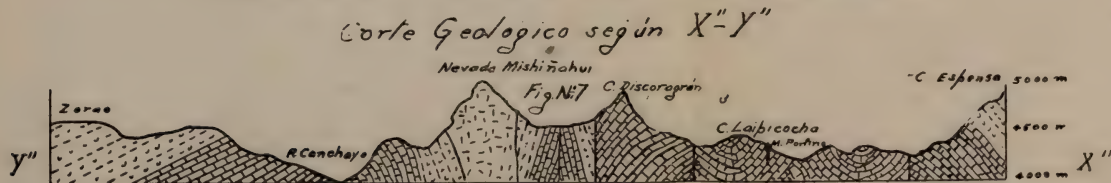 Corte Geologico según X"-Y"
Nevado Mishiñahui
Fig. Nº7
C. Discoragrán
C. Espensa
5000 m
Zorao
4500 m
C. Laipicocha
R. Canchayo
Y"
X"
4000 m